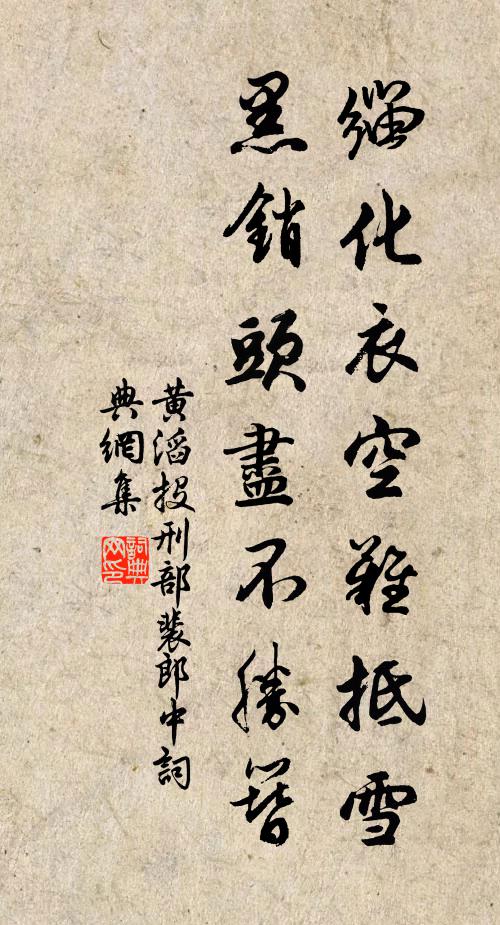 緇化衣空難抵雪
黑銷頭盡不勝簪
黃滔投刑部裴郎中詞
典網集
詞典
网印